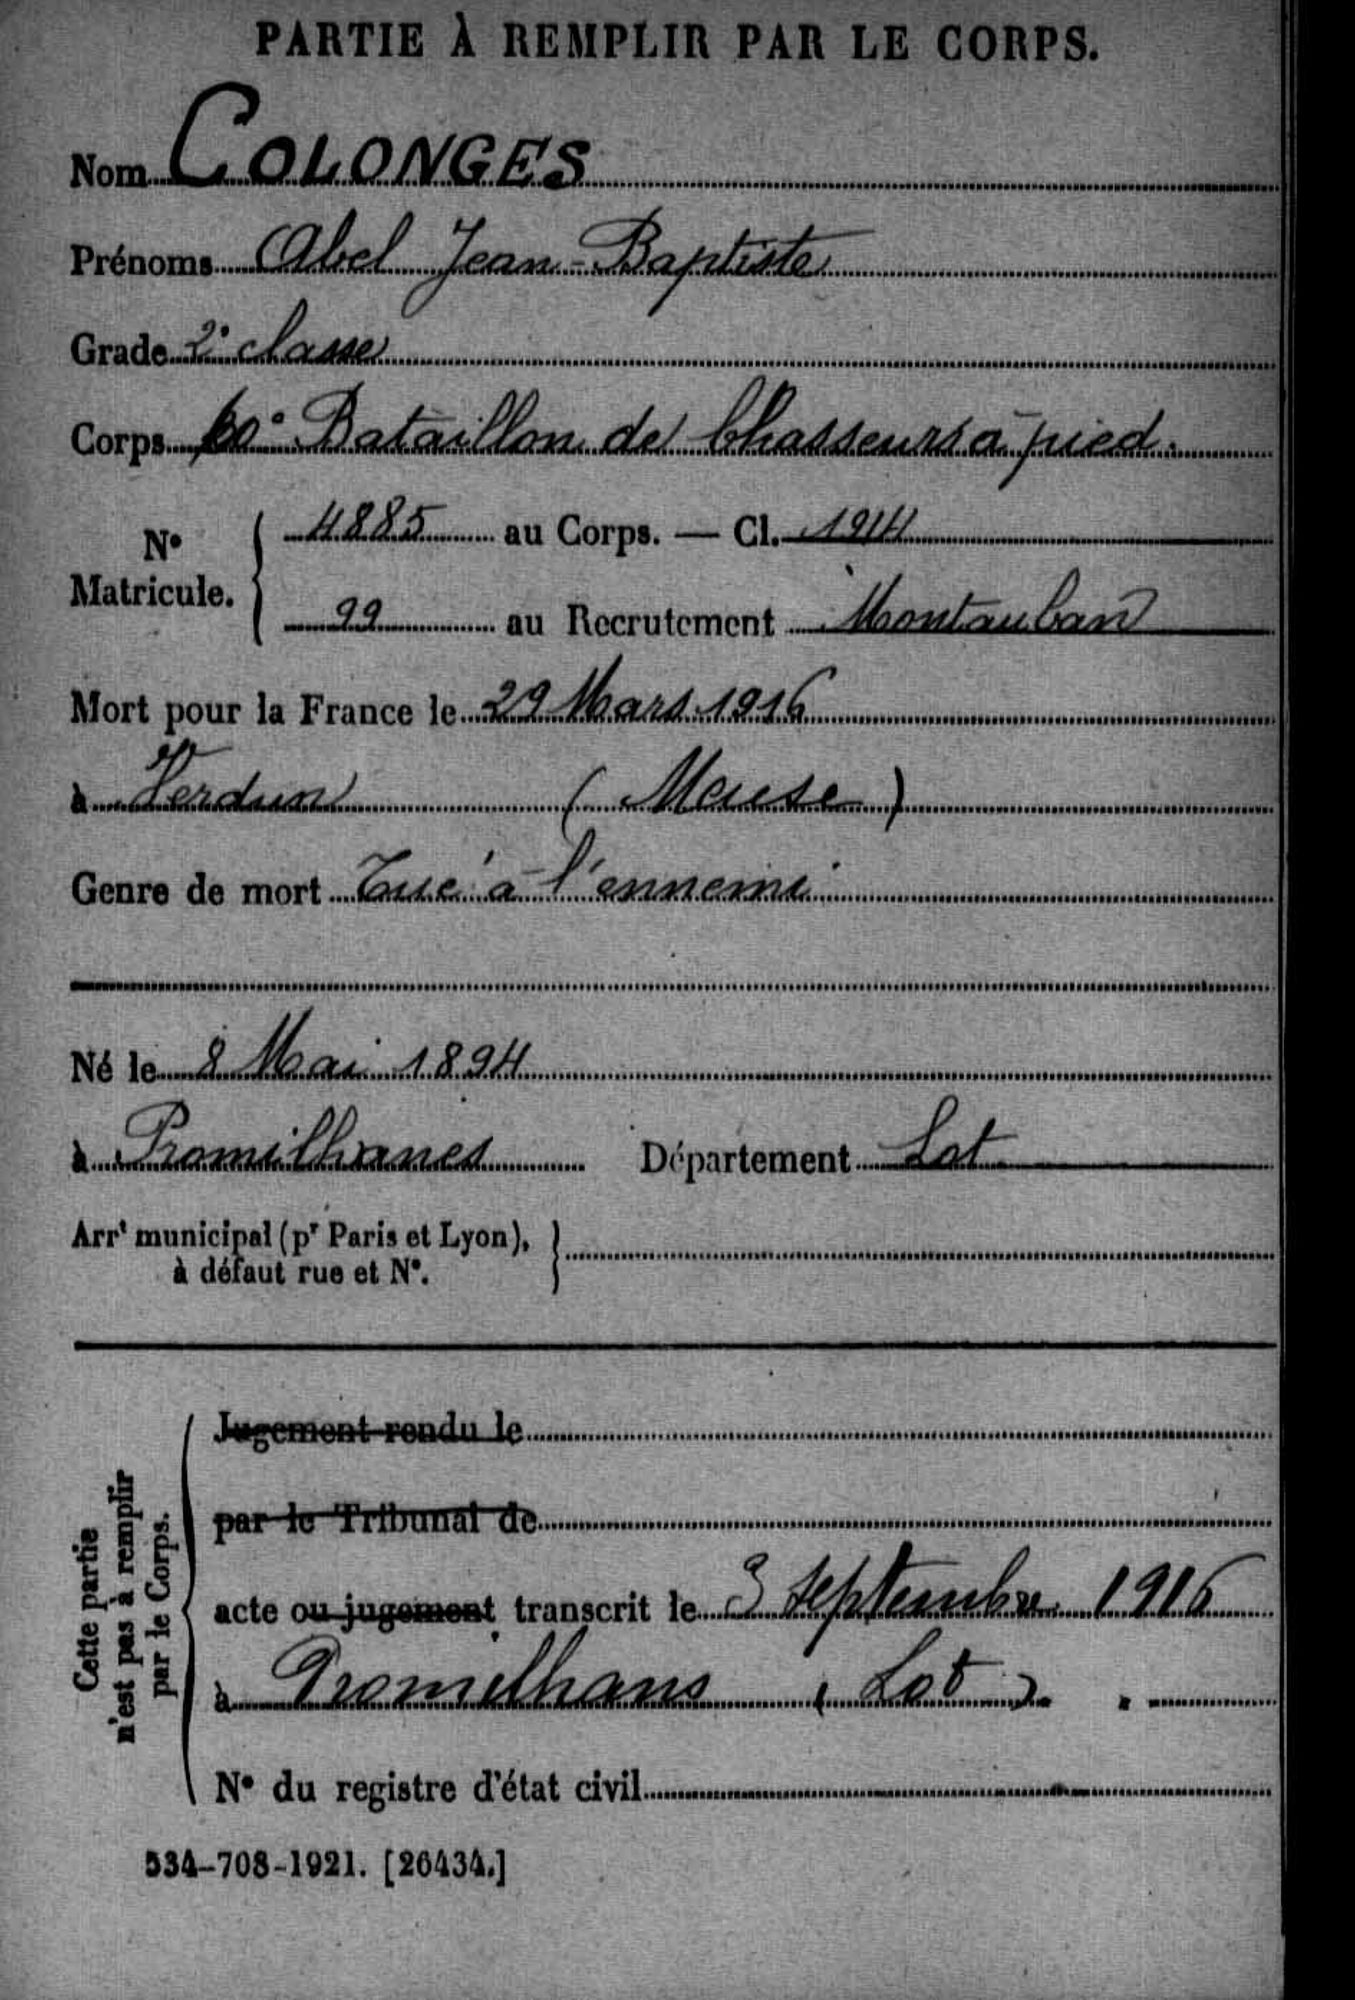 PARTIE À REMPLIR PAR LE CORPS.
Nom COLONGES
Prénoms Abel Jean-Baptiste
Grade 2e classe
Corps 60e Bataillon de Chasseurs à pied.
No Matricule. { 4885 au Corps. — Cl. 1914
99 au Recrutement Montauban
Mort pour la France le 29 Mars 1916
à Verdun ( Meuse )
Genre de mort Tué à l'ennemi
Né le 8 Mai 1894
à Promilhanes Département Lot
Arrt municipal (pr Paris et Lyon), }
à défaut rue et No.
Cette partie
n'est pas à remplir
par le Corps.
Jugement rendu le
par le Tribunal de
acte ou jugement transcrit le 3 septembre 1916
à Promilhans ( Lot ).
No du registre d'état civil
534-708-1921. [26434.]